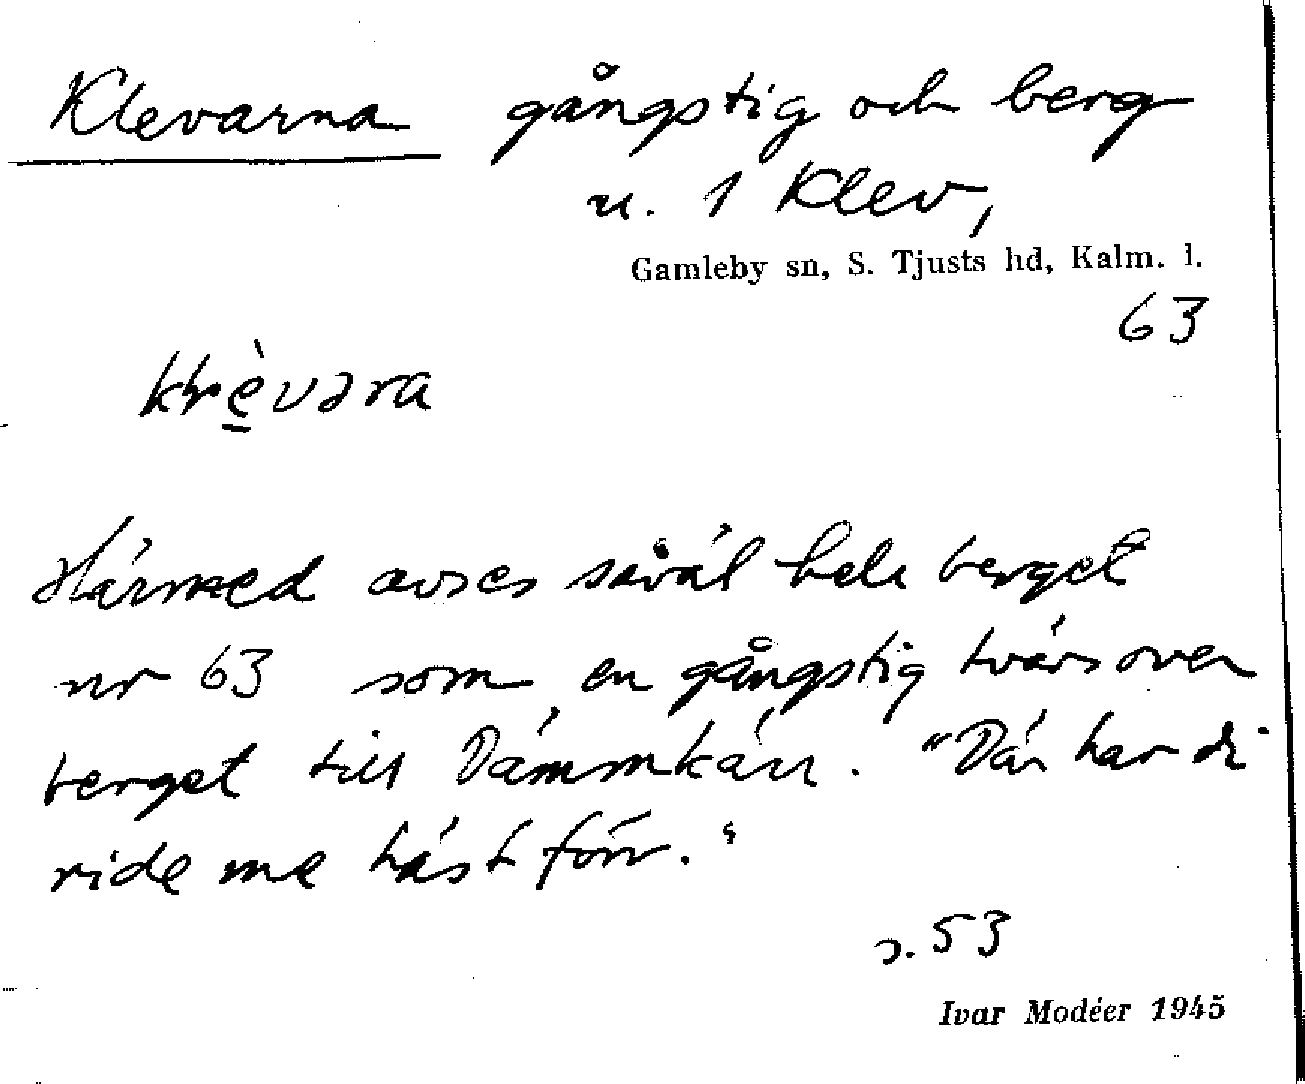 Klevarna gångstig och berg
u. 1 Klev,
Gamleby sn, S. Tjusts hd, Kalm. l.
63
Härmed avses såväl hela berget
nr 63 som en gångstig tvärs över
berget till Dämmkärr. "Där har di
ride me häst förr."
s. 53
Ivar Modéer 1945